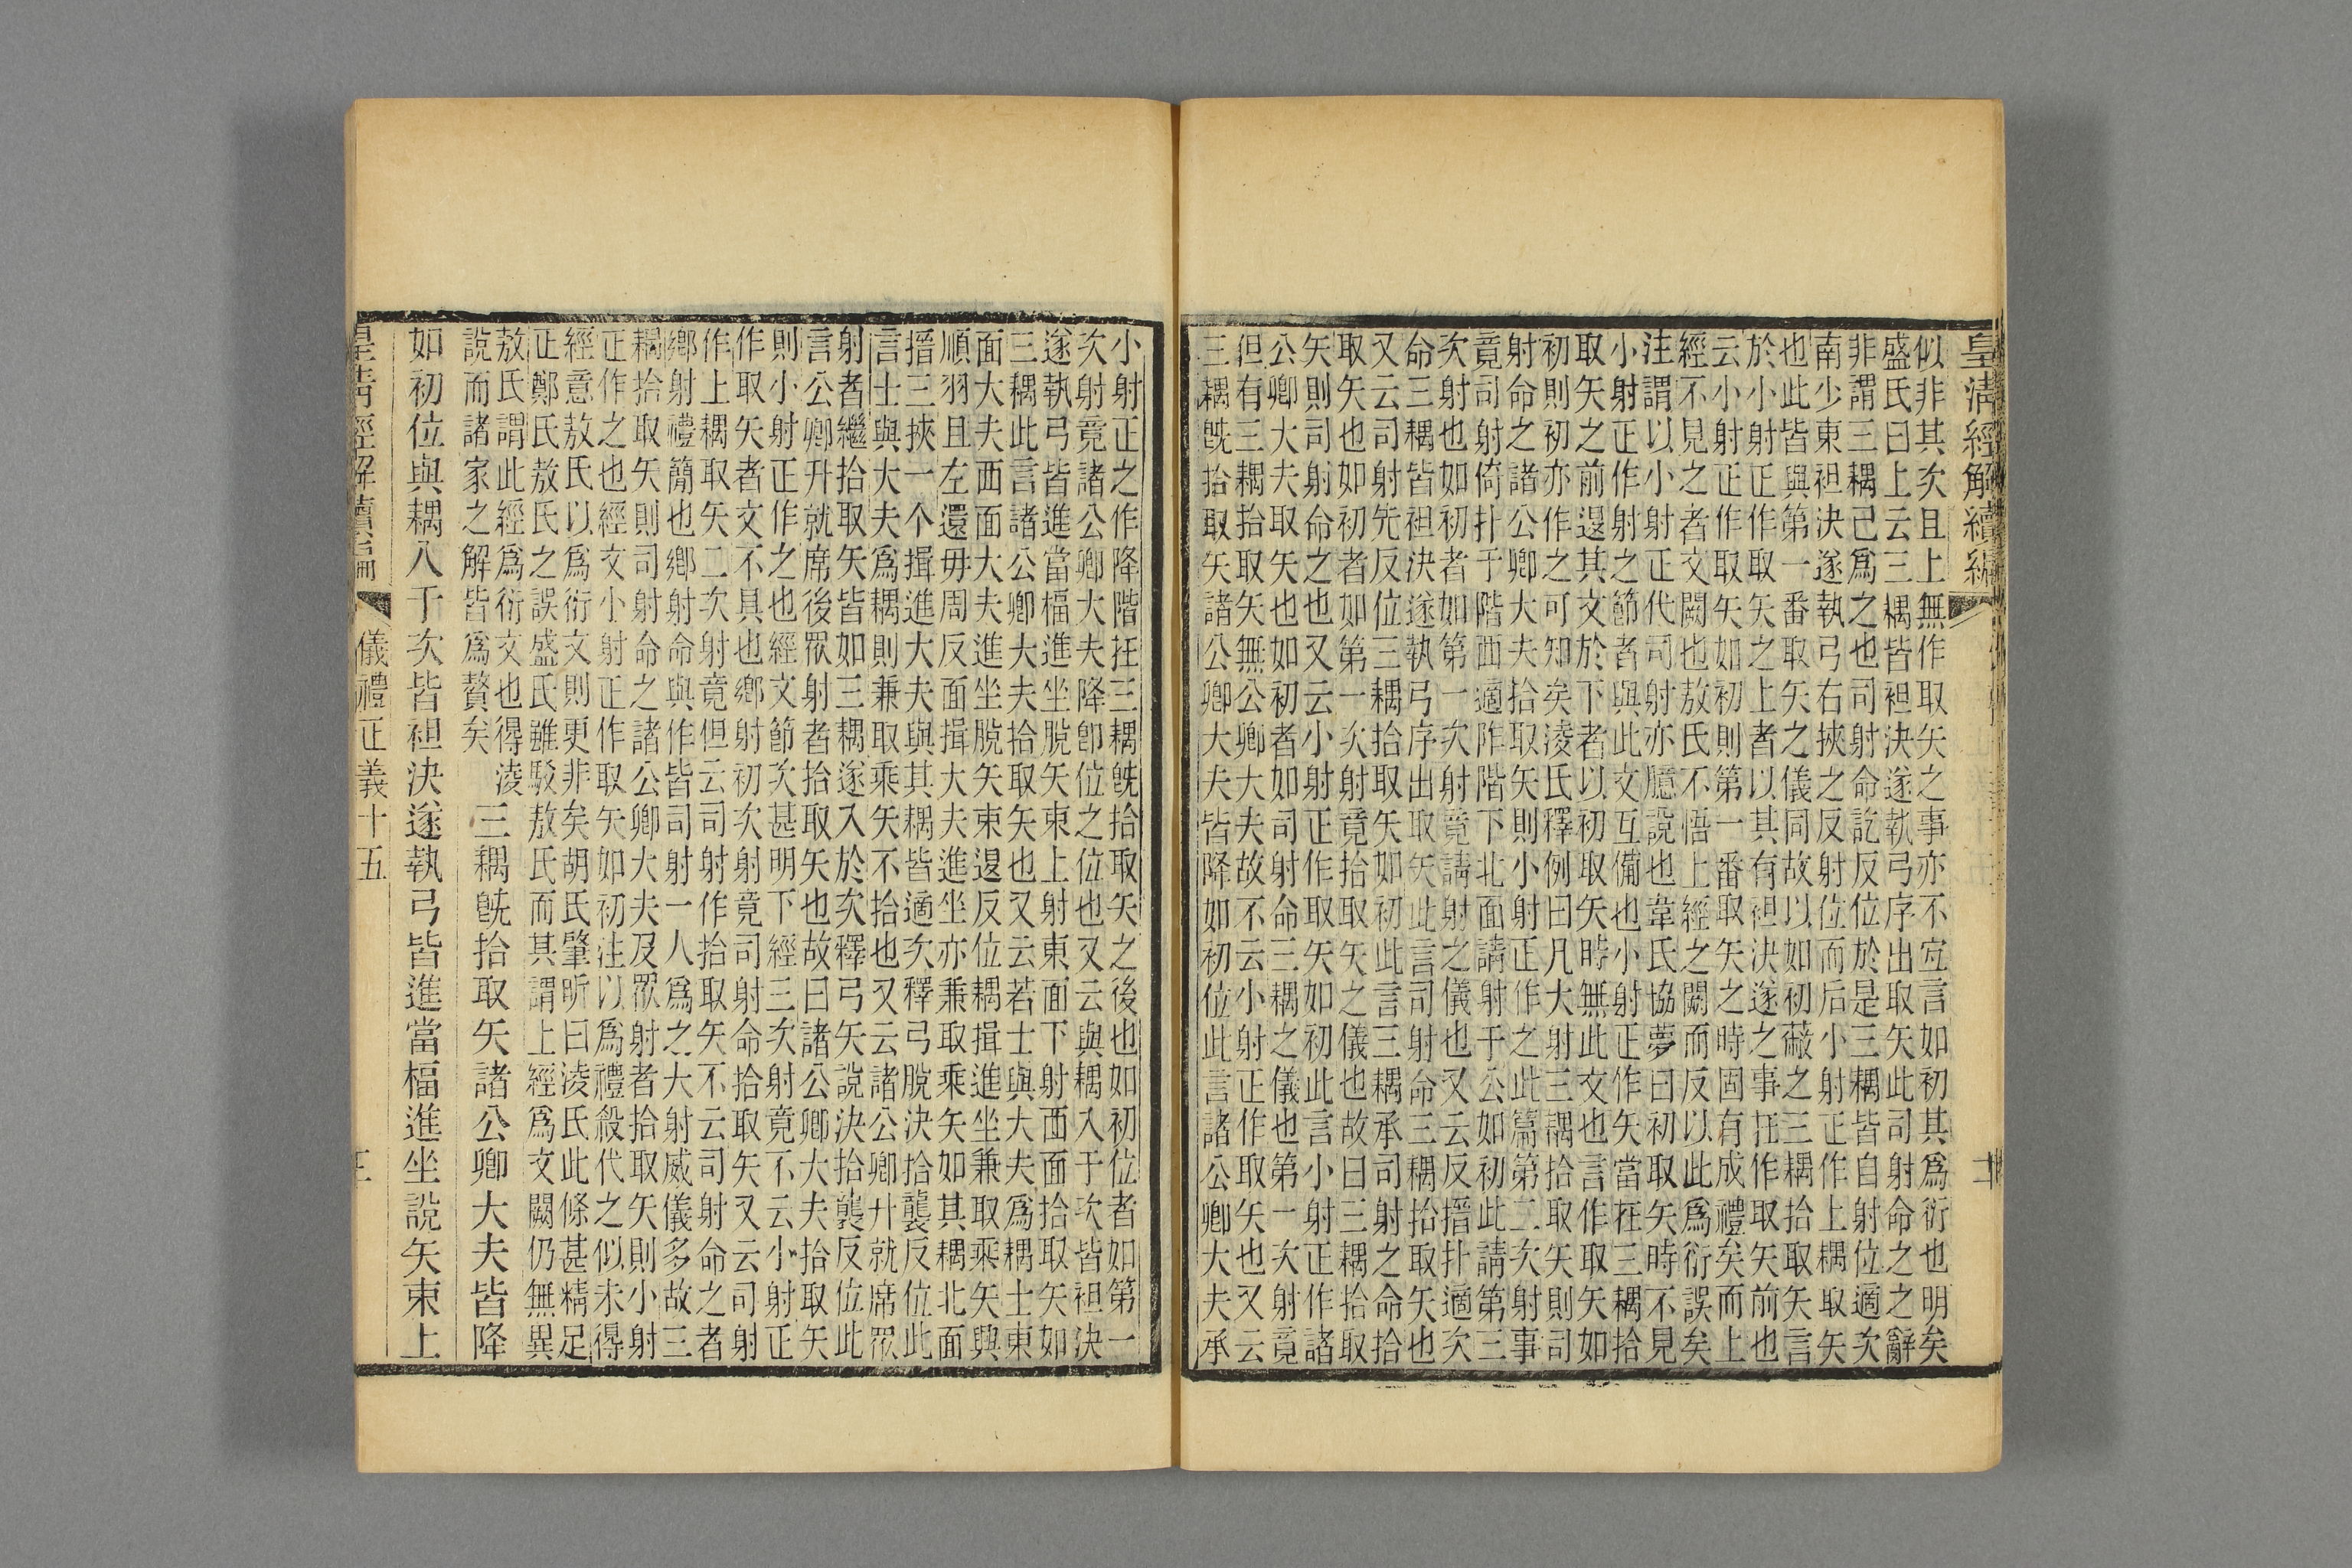 皇清經解續編
二
似非其次且上無作取矢之事亦不宜言如初其爲衍也明矣
盛氏曰上云三耦皆袒決遂執弓序出取矢此司射命之之辭
非謂三耦已爲之也司射命訖反位於是三耦皆自射位適次
南少東袒決遂執弓右挾之反射位而后小射正作上耦取矢
也此皆與第一番取矢之儀同故以如初蔽之三耦拾取矢言
於小射正作取矢之上者以其有袒決遂之事在作取矢前也
云小射正作取矢如初則第一番取矢之時固有成禮矣而上
經不見之者文闕也敖氏不悟上經之闕而反以此爲衍誤矣
注謂以小射正代司射亦臆說也韋氏協夢曰初取矢時不見
小射正作射之節者與此文互備也小射正作矢當在三耦拾
取矢之前退其文於下者以初取矢時無此文也言作取矢如
初則初亦作之可知矣淩氏釋例曰凡大射三耦拾取矢則司
射命之諸公卿大夫拾取矢則小射正作之此篇第二次射事
竟司射倚扑于階西適阼階下北面請射于公如初此請第三
次射也如初者如第一次射竟請射之儀也又云反搢扑適次
命三耦皆袒決遂執弓序出取矢此言司射命三耦拾取矢也
又云司射先反位三耦拾取矢如初此言三耦承司射之命拾
取矢也如初者如第一次射竟拾取矢之儀也故曰三耦拾取
矢則司射命之也又云小射正作取矢如初此言小射正作諸
公卿大夫取矢也如初者如司射命三耦之儀也第一次射竟
但有三耦拾取矢無公卿大夫故不云小射正作取矢也又云
三耦旣拾取矢諸公卿大夫皆降如初位此言諸公卿大夫承
小射正之作降階在三耦旣拾取矢之後也如初位者如第一
次射竟諸公卿大夫降卽位之位也又云與耦入于次皆袒決
遂執弓皆進當楅進坐脫矢東上射東面下射西面拾取矢如
三耦此言諸公卿大夫拾取矢也又云若士與大夫爲耦士東
面大夫西面大夫進坐脫矢束退反位耦揖進坐兼取乘矢興
順羽且左還毋周反面揖大夫進坐亦兼取乘矢如其耦北面
搢三挾一个揖進大夫與其耦皆適次釋弓脫決拾襲反位此
言士與大夫爲耦則兼取乘矢不拾也又云諸公卿升就席眾
射者繼拾取矢皆如三耦遂入於次釋弓矢說決拾襲反位此
言公卿升就席後眾射者拾取矢也故曰諸公卿大夫拾取矢
則小射正作之也經文節次甚明下經三次射竟不云小射正
作取矢者文不具也鄉射初次射竟司射命拾取矢又云司射
作上耦取矢二次射竟但云司射作拾取矢不云司射命之者
鄉射禮簡也鄉射命與作皆司射一人爲之大射威儀多故三
耦拾取矢則司射命之諸公卿大夫及眾射者拾取矢則小射
正作之也經文小射正作取矢如初注以爲禮殺代之似未得
經意敖氏以爲衍文則更非矣胡氏肇昕曰淩氏此條甚精足
正鄭氏敖氏之誤盛氏雖駁敖氏而其謂上經爲文闕仍無異
敖氏謂此經爲衍文也得淩
說而諸家之解皆爲贅矣
三耦旣拾取矢諸公卿大夫皆降
如初位與耦入于次皆袒決遂執弓皆進當楅進坐說矢東上
皇清經解續編
儀禮正義十五